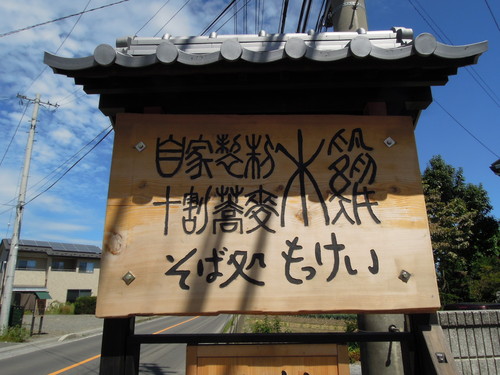 自家製粉
十割蕎麥
木鶏
そば処 もっけい